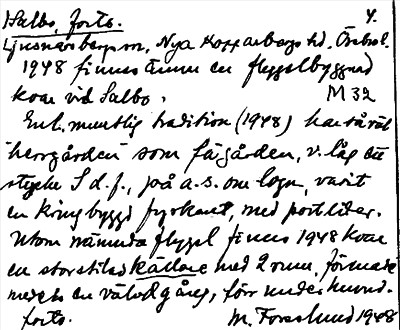 Salbo, forts. 4.
Ljusnarsbergs sn, Nya Kopparbergs hd, Örebro l.
1948 finnes ännu en flygelbyggnad
kvar vid Salbo. M 32
Enl. muntlig tradition (1948) har såväl
herrgården som fägården, v. låg ett
stycke S d.f., på a.s. om logn, varit
en kringbyggd fyrkant, med portlider.
Utom nämnda flygel finns 1948 kvar
en storstilad källare med 2 rum,
medels en välvd gång, förr under huvud-
forts. M. Forslund 1948